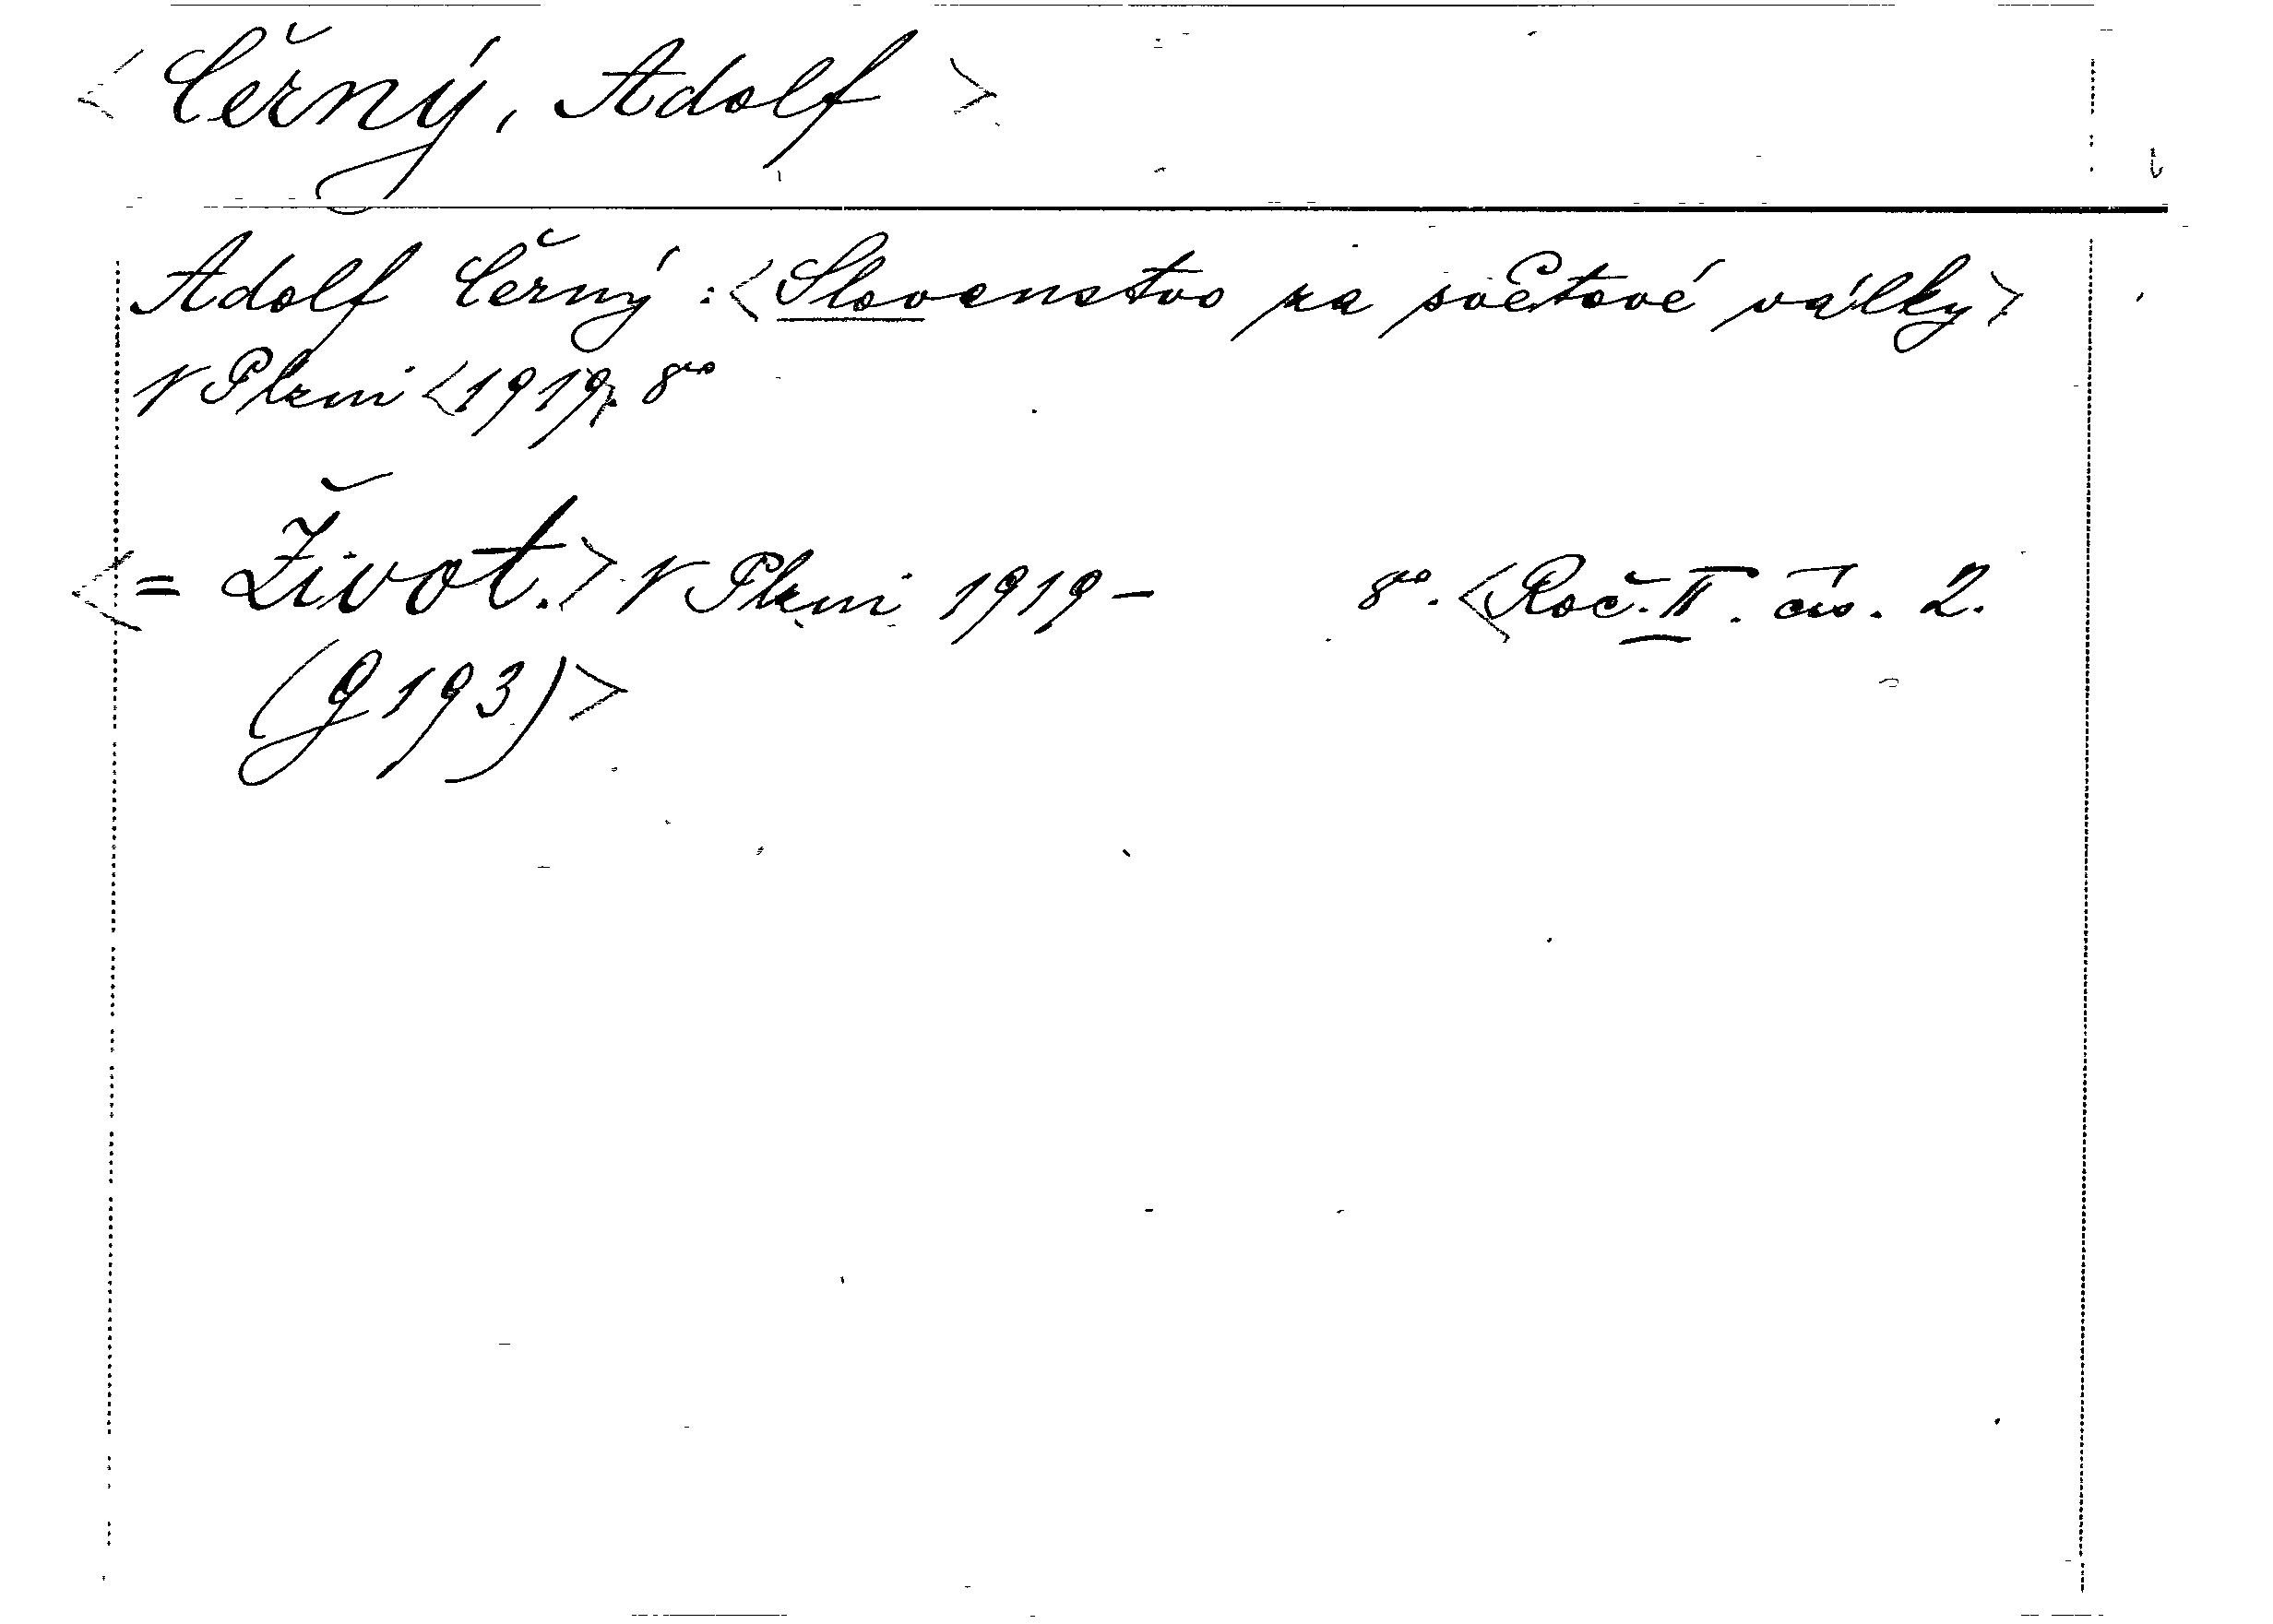 <Černý, Adolf>
Adolf Černý: <Slovanstvo za světové války>
V Plzni <1919>. 8vo
<= Život.> V Plzni 1919- 8vo. <Roč. II. čís. 2.
(G 193)>